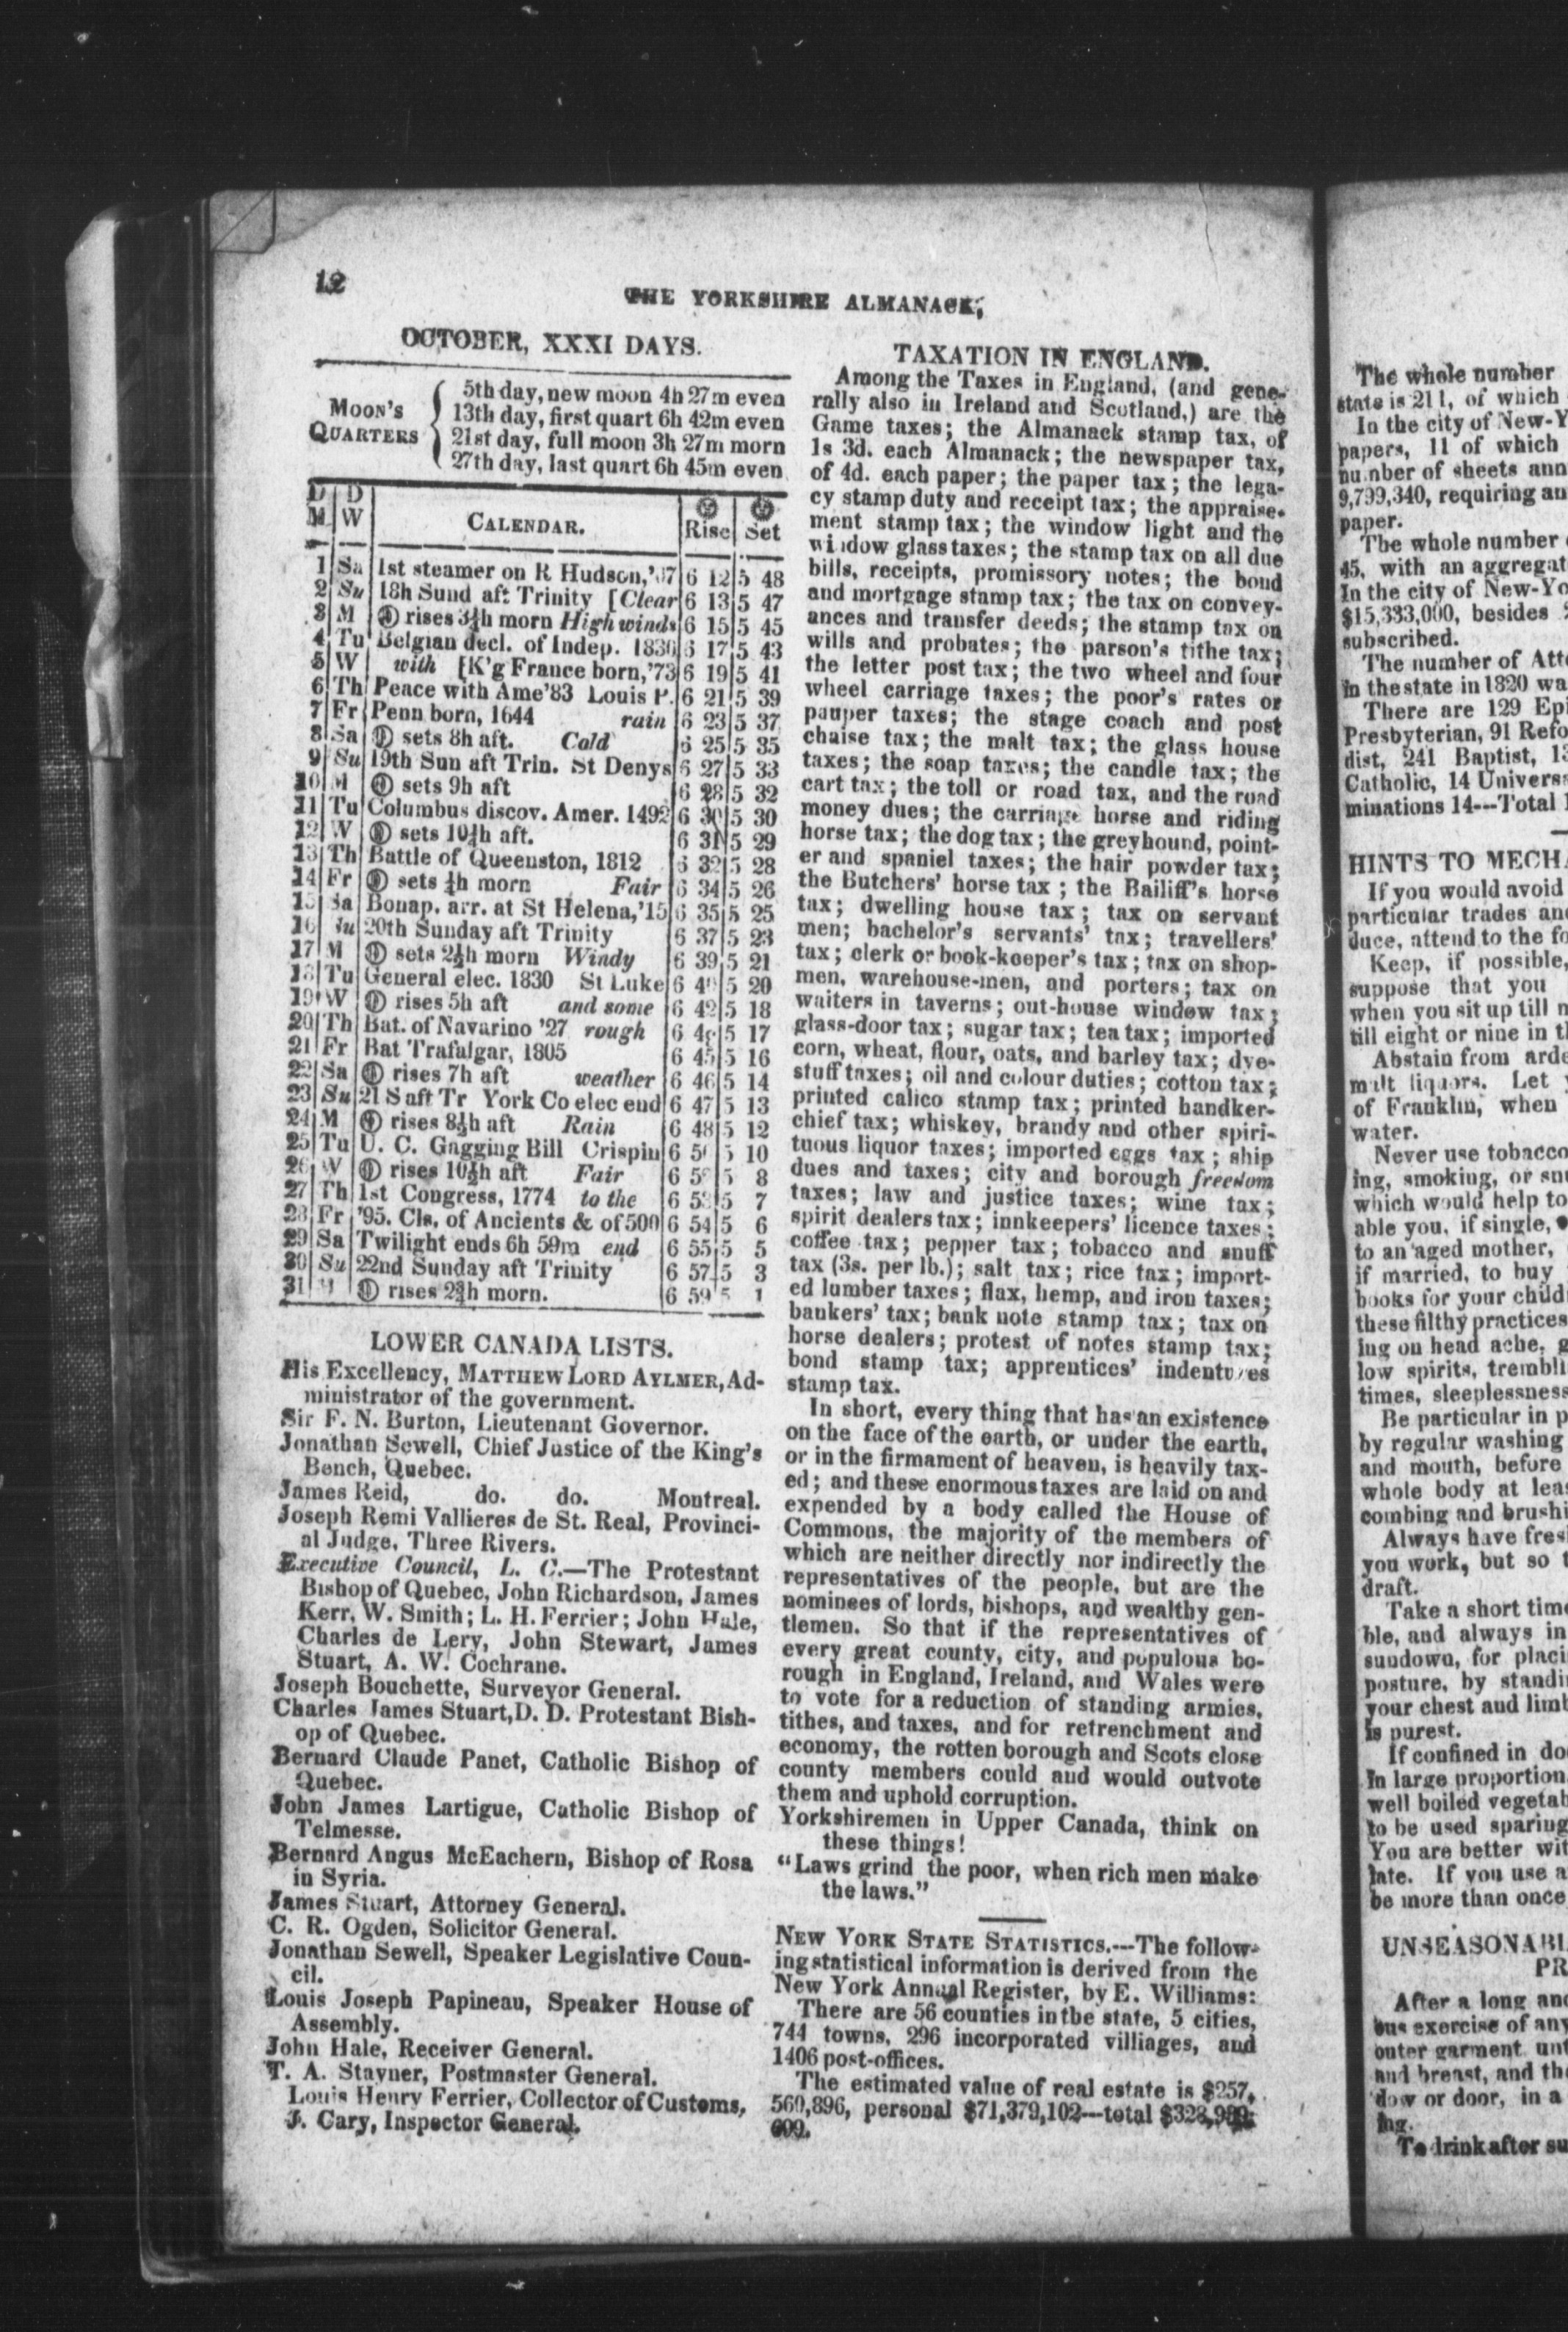 12
THE YORKSHIRE ALMANACK,
OCTOBER, XXXI DAYS.
MOON'S QUARTERS
5th day, new moon 4h 27m even
13th day, first quart 6h 42m even
21st day, full moon 3h 27m morn
27th day, last quart 6h 45m even
D M | D W | CALENDAR. | Rise | Set
1 Sa 1st steamer on R Hudson,'07 6 12 5 48
2 Su 18h Sund aft Trinity [Clear 6 13 5 47
3 M rises 3¼h morn High winds 6 15 5 45
4 Tu Belgian decl. of Indep. 1830 6 17 5 43
5 W with [K'g France born,'73 6 19 5 41
6 Th Peace with Ame'83 Louis P. 6 21 5 39
7 Fr Penn born, 1644 rain 6 23 5 37
8 Sa sets 8h aft. Cold 6 25 5 35
9 Su 19th Sun aft Trin. St Denys 6 27 5 33
10 M sets 9h aft 6 28 5 32
11 Tu Columbus discov. Amer. 1492 6 30 5 30
12 W sets 10¼h aft. 6 31 5 29
13 Th Battle of Queenston, 1812 6 32 5 28
14 Fr sets ¼h morn Fair 6 34 5 26
15 Sa Bonap. arr. at St Helena,'15 6 35 5 25
16 Su 20th Sunday aft Trinity 6 37 5 23
17 M sets 2½h morn Windy 6 39 5 21
18 Tu General elec. 1830 St Luke 6 40 5 20
19 W rises 5h aft and some 6 42 5 18
20 Th Bat. of Navarino '27 rough 6 43 5 17
21 Fr Bat Trafalgar, 1805 6 45 5 16
22 Sa rises 7h aft weather 6 46 5 14
23 Su 21 S aft Tr York Co elec end 6 47 5 13
24 M rises 8½h aft Rain 6 48 5 12
25 Tu U. C. Gagging Bill Crispin 6 50 5 10
26 W rises 10½h aft Fair 6 52 5 8
27 Th 1st Congress, 1774 to the 6 53 5 7
28 Fr '95. Cls. of Ancients & of 500 6 54 5 6
29 Sa Twilight ends 6h 59m end 6 55 5 5
30 Su 22nd Sunday aft Trinity 6 57 5 3
31 M rises 2¾h morn. 6 59 5 1
LOWER CANADA LISTS.
His Excellency, MATTHEW LORD AYLMER, Ad-
ministrator of the government.
Sir F. N. Burton, Lieutenant Governor.
Jonathan Sewell, Chief Justice of the King's
Bench, Quebec.
James Reid, do. do. Montreal.
Joseph Remi Vallieres de St. Real, Provinci-
al Judge, Three Rivers.
Executive Council, L. C.—The Protestant
Bishop of Quebec, John Richardson, James
Kerr, W. Smith; L. H. Ferrier; John Hale,
Charles de Lery, John Stewart, James
Stuart, A. W. Cochrane.
Joseph Bouchette, Surveyor General.
Charles James Stuart, D. D. Protestant Bish-
op of Quebec.
Bernard Claude Panet, Catholic Bishop of
Quebec.
John James Lartigue, Catholic Bishop of
Telmesse.
Bernard Angus McEachern, Bishop of Rosa
in Syria.
James Stuart, Attorney General.
C. R. Ogden, Solicitor General.
Jonathan Sewell, Speaker Legislative Coun-
cil.
Louis Joseph Papineau, Speaker House of
Assembly.
John Hale, Receiver General.
T. A. Stayner, Postmaster General.
Louis Henry Ferrier, Collector of Customs,
J. Cary, Inspector General.
TAXATION IN ENGLAND.
Among the Taxes in England, (and gene-
rally also in Ireland and Scotland,) are the
Game taxes; the Almanack stamp tax, of
1s 3d. each Almanack; the newspaper tax,
of 4d. each paper; the paper tax; the lega-
cy stamp duty and receipt tax; the appraise-
ment stamp tax; the window light and the
window glass taxes; the stamp tax on all due
bills, receipts, promissory notes; the bond
and mortgage stamp tax; the tax on convey-
ances and transfer deeds; the stamp tax on
wills and probates; the parson's tithe tax;
the letter post tax; the two wheel and four
wheel carriage taxes; the poor's rates or
pauper taxes; the stage coach and post
chaise tax; the malt tax; the glass house
taxes; the soap taxes; the candle tax; the
cart tax; the toll or road tax, and the road
money dues; the carriage horse and riding
horse tax; the dog tax; the greyhound, point-
er and spaniel taxes; the hair powder tax;
the Butchers' horse tax; the Bailiff's horse
tax; dwelling house tax; tax on servant
men; bachelor's servants' tax; travellers'
tax; clerk or book-keeper's tax; tax on shop-
men, warehouse-men, and porters; tax on
waiters in taverns; out-house window tax;
glass-door tax; sugar tax; tea tax; imported
corn, wheat, flour, oats, and barley tax; dye-
stuff taxes; oil and colour duties; cotton tax;
printed calico stamp tax; printed handker-
chief tax; whiskey, brandy and other spiri-
tuous liquor taxes; imported eggs tax; ship
dues and taxes; city and borough freedom
taxes; law and justice taxes; wine tax;
spirit dealers tax; innkeepers' licence taxes;
coffee tax; pepper tax; tobacco and snuff
tax (3s. per lb.); salt tax; rice tax; import-
ed lumber taxes; flax, hemp, and iron taxes;
bankers' tax; bank note stamp tax; tax on
horse dealers; protest of notes stamp tax;
bond stamp tax; apprentices' indentures
stamp tax.
In short, every thing that has an existence
on the face of the earth, or under the earth,
or in the firmament of heaven, is heavily tax-
ed; and these enormous taxes are laid on and
expended by a body called the House of
Commons, the majority of the members of
which are neither directly nor indirectly the
representatives of the people, but are the
nominees of lords, bishops, and wealthy gen-
tlemen. So that if the representatives of
every great county, city, and populous bo-
rough in England, Ireland, and Wales were
to vote for a reduction of standing armies,
tithes, and taxes, and for retrenchment and
economy, the rotten borough and Scots close
county members could and would outvote
them and uphold corruption.
Yorkshiremen in Upper Canada, think on
these things!
"Laws grind the poor, when rich men make
the laws."
NEW YORK STATE STATISTICS.---The follow-
ing statistical information is derived from the
New York Annual Register, by E. Williams:
There are 56 counties in the state, 5 cities,
744 towns, 296 incorporated villiages, and
1406 post-offices.
The estimated value of real estate is $257,
560,896, personal $71,379,102—total $328,
The whole number
state is 211, of which
In the city of New-Y
papers, 11 of which
number of sheets ann
9,799,340, requiring an
paper.
The whole number
45, with an aggregat
In the city of New-Yo
$15,333,000, besides
subscribed.
The number of Att
in the state in 1820 wa
There are 129 Epi
Presbyterian, 91 Refo
dist, 241 Baptist, 13
Catholic, 14 Univers
minations 14---Total
HINTS TO MECHA
If you would avoid
particular trades and
duce, attend to the fo
Keep, if possible,
suppose that you
when you sit up till n
till eight or nine in th
Abstain from arde
malt liquors. Let
of Franklin, when
water.
Never use tobacco
ing, smoking, or snu
which would help to
able you, if single,
to an aged mother,
if married, to buy
books for your child
these filthy practices
ing on head ache, g
low spirits, trembli
times, sleeplessness
Be particular in p
by regular washing
and mouth, before
whole body at leas
combing and brushi
Always have fres
you work, but so t
draft.
Take a short time
ble, and always in
sundown, for placi
posture, by standi
your chest and limb
is purest.
If confined in do
In large proportion
well boiled vegetab
to be used sparing
You are better wit
late. If you use a
be more than once
UNSEASONABL
PR
After a long and
ous exercise of any
outer garment unt
and breast, and the
dow or door, in a
ing.
To drink after su